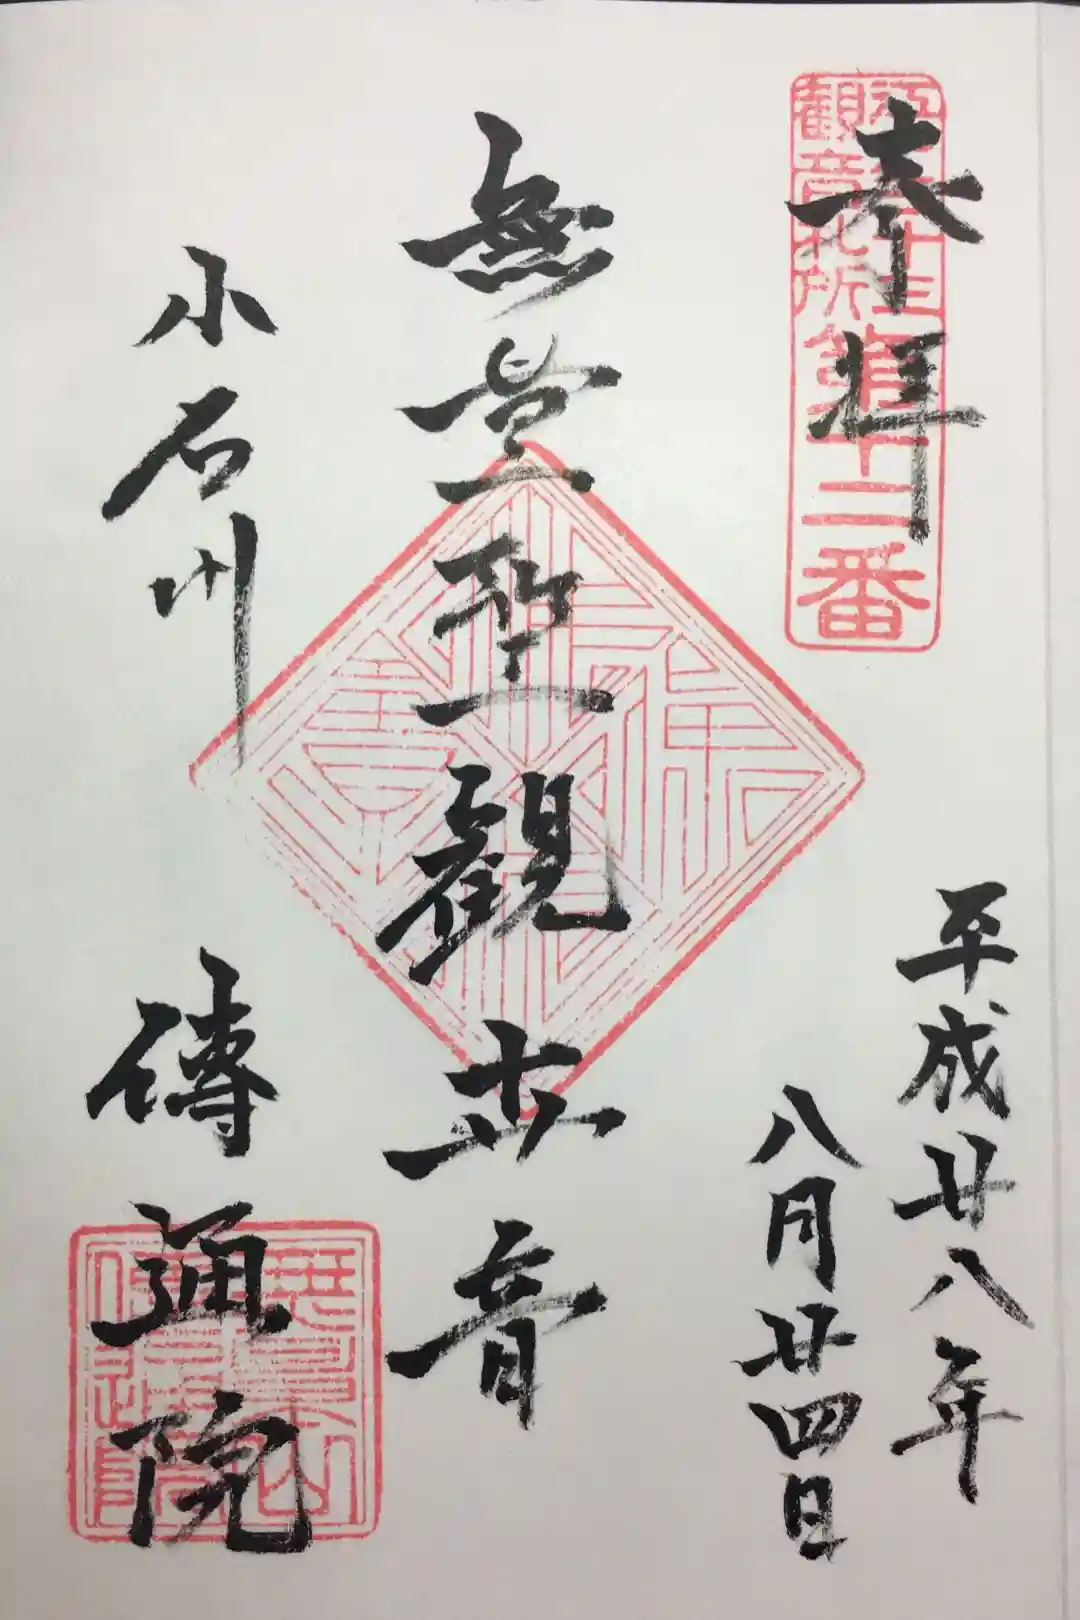 奉拝
江戸三十三
観音札所
第十二番
平成廿八年
八月廿四日
無量聖観世音
小石川
傳通院